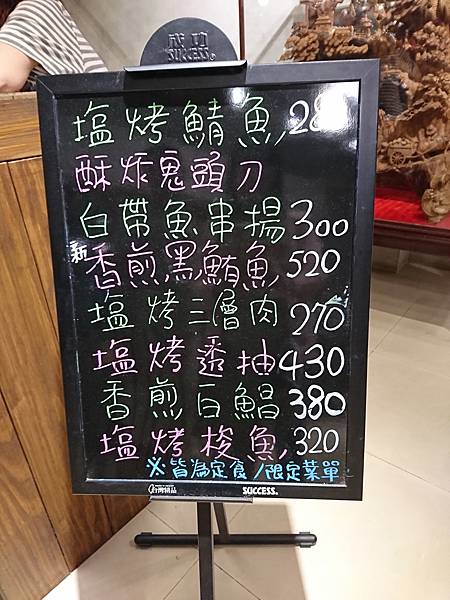 成功
SUCCESS®
塩烤鯖魚 28
酥炸鬼頭刀
白帶魚串揚 300
新 香煎黑鮪魚 520
塩烤三層肉 270
塩烤透抽 430
香煎白鯧 380
塩烤梭魚 320
※皆為定食/限定菜單
台灣精品 SUCCESS®